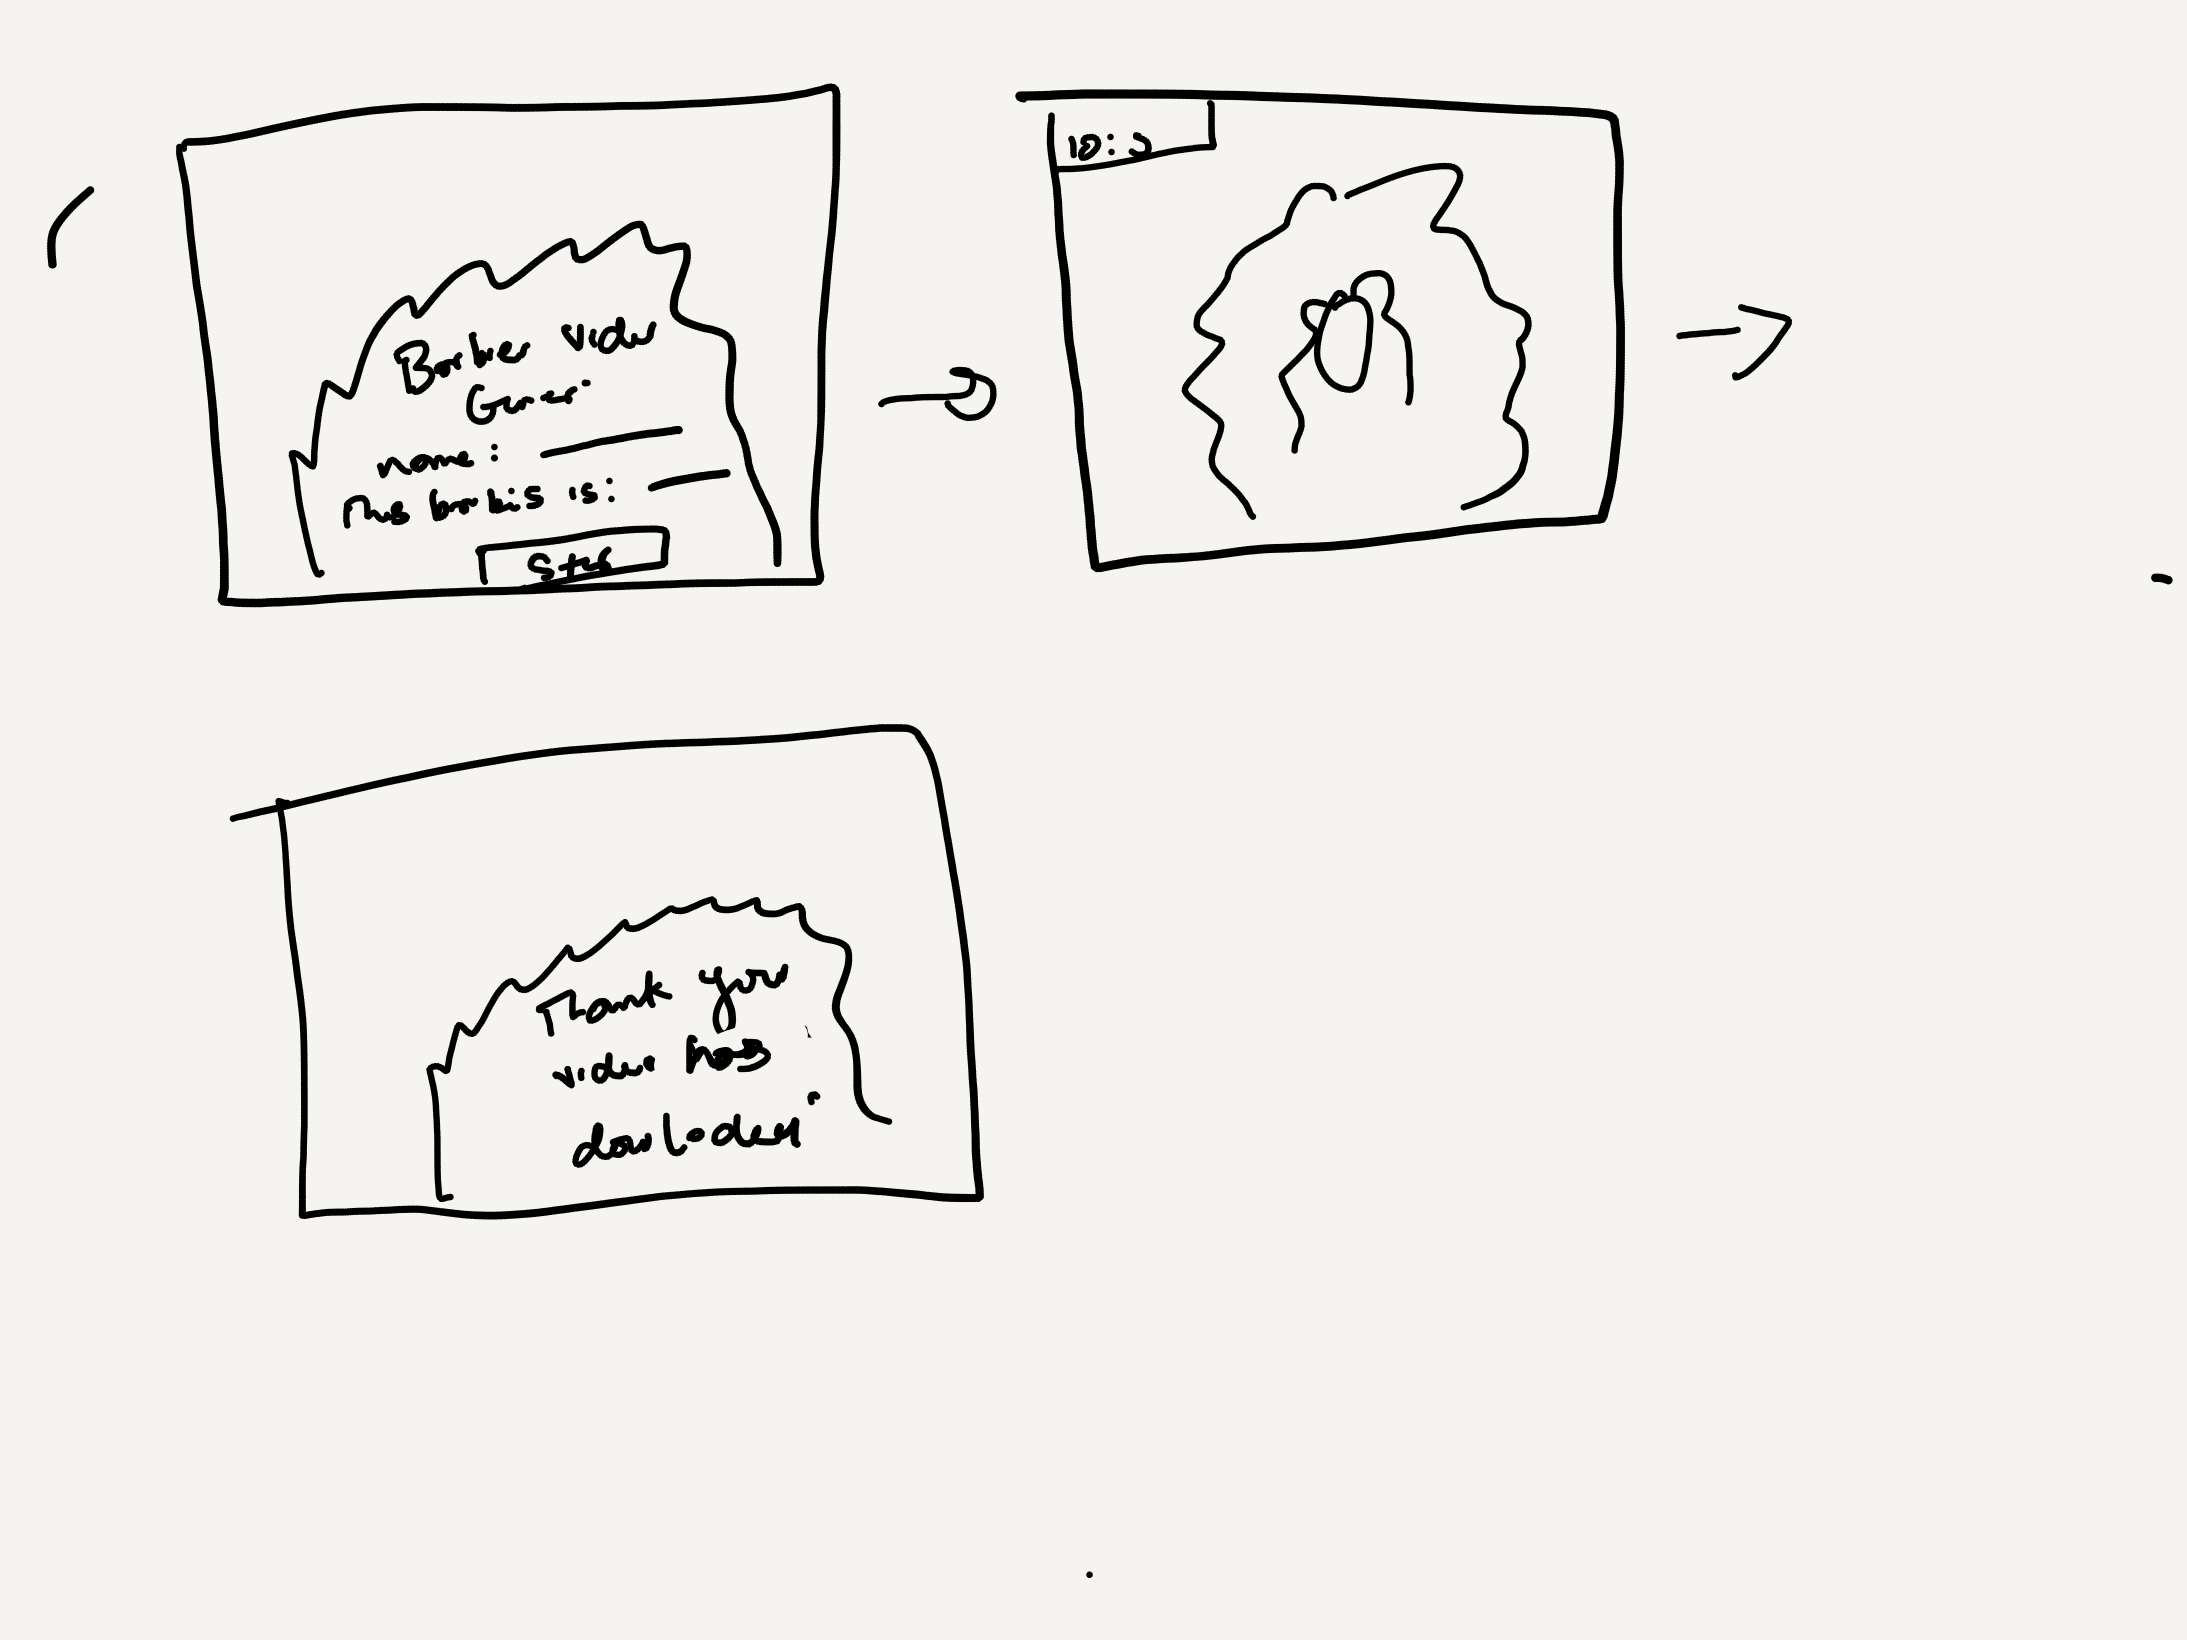 Barbie video
Game
name :
This barbie is :
Start
10:5
Thank you
video has
downloaded